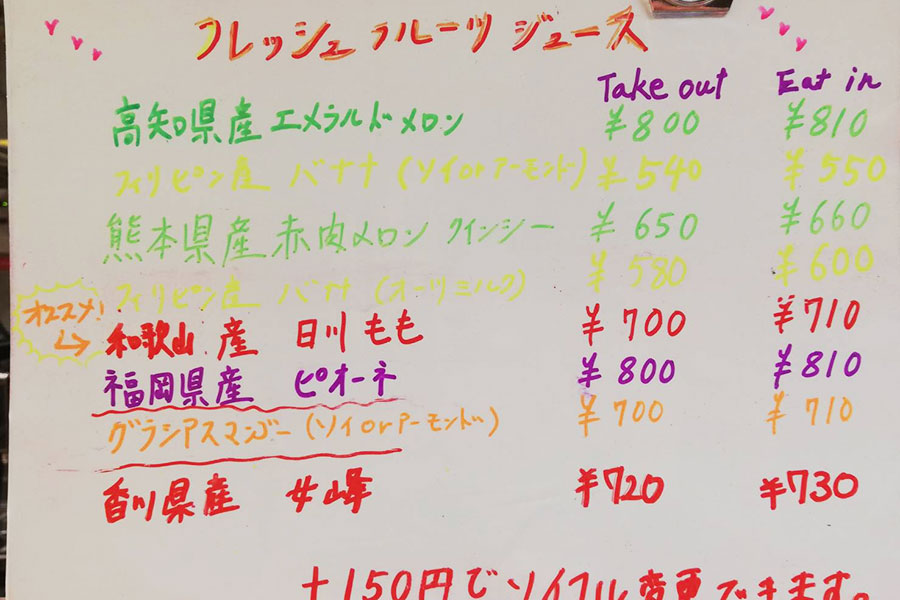 フレッシュフルーツジュース
Take out Eat in
高知県産エメラルドメロン ¥800 ¥810
フィリピン産 バナナ (ソイorアーモンド) ¥540 ¥550
熊本県産赤肉メロン クインシー ¥650 ¥660
フィリピン産 バナナ (オーツミルク) ¥580 ¥600
オススメ!
和歌山産 日川もも ¥700 ¥710
福岡県産 ピオーネ ¥800 ¥810
グラシアスマンゴー(ソイorアーモンド) ¥700 ¥710
香川県産 女峰 ¥720 ¥730
+150円でソイフル変更できます。